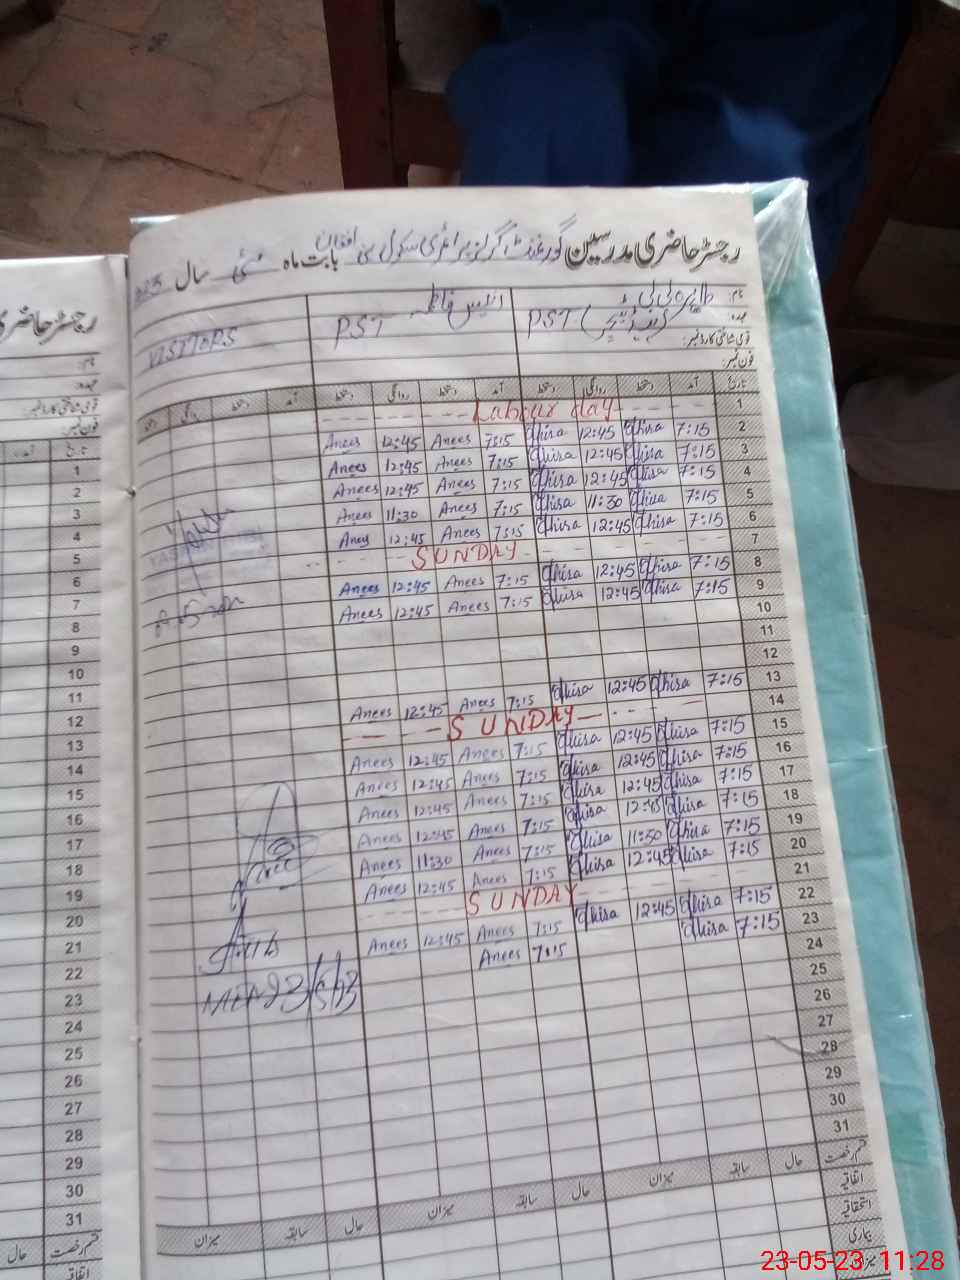 رجسٹر حاضری مدرسین گورنمنٹ گرلز پرائمری سکول بستی افغان بابت ماہ مئی سال 2023
نام: طاہرہ بی بی انیس فاطمہ
عہدہ: PST (ہیڈ ٹیچر) PST VISITORS
قومی شناختی کارڈ نمبر:
فون نمبر:
تاریخ آمد دستخط روانگی دستخط آمد دستخط روانگی دستخط آمد دستخط روانگی
1 Labour day
2 7:15 12:45 7:15 Anees 12:45 Anees
3 7:15 12:45 7:15 Anees 12:45 Anees
4 7:15 12:45 7:15 Anees 12:45 Anees
5 7:15 11:30 7:15 Anees 11:30 Anees
6 7:15 12:45 7:15 Anees 12:45 Anees
7 SUNDAY
8 7:15 12:45 7:15 Anees 12:45 Anees
9 7:15 12:45 7:15 Anees 12:45 Anees
10
11
12
13 7:15 12:45 7:15 Anees 12:45 Anees
14 SUNDAY
15 7:15 12:45 7:15 Anees 12:45 Anees
16 7:15 12:45 7:15 Anees 12:45 Anees
17 7:15 12:45 7:15 Anees 12:45 Anees
18 7:15 12:45 7:15 Anees 12:45 Anees
19 7:15 11:30 7:15 Anees 11:30 Anees
20 7:15 12:45 7:15 Anees 12:45 Anees
21 SUNDAY
22 7:15 12:45 7:15 Anees 12:45 Anees
23 7:15 7:15 Anees
24
25
26
27
28
29
30
31
23/5/23
قسم رخصت حال سابقہ میزان حال سابقہ میزان حال سابقہ میزان
اتفاقیہ
استحقاقیہ
بیماری
رجسٹر حاضری
نام:
عہدہ:
قومی شناختی کارڈ نمبر:
فون نمبر:
تاریخ آمد
1
2
3
4
5
6
7
8
9
10
11
12
13
14
15
16
17
18
19
20
21
22
23
24
25
26
27
28
29
30
31
قسم رخصت حال
اتفاقیہ
23-05-23 11:28